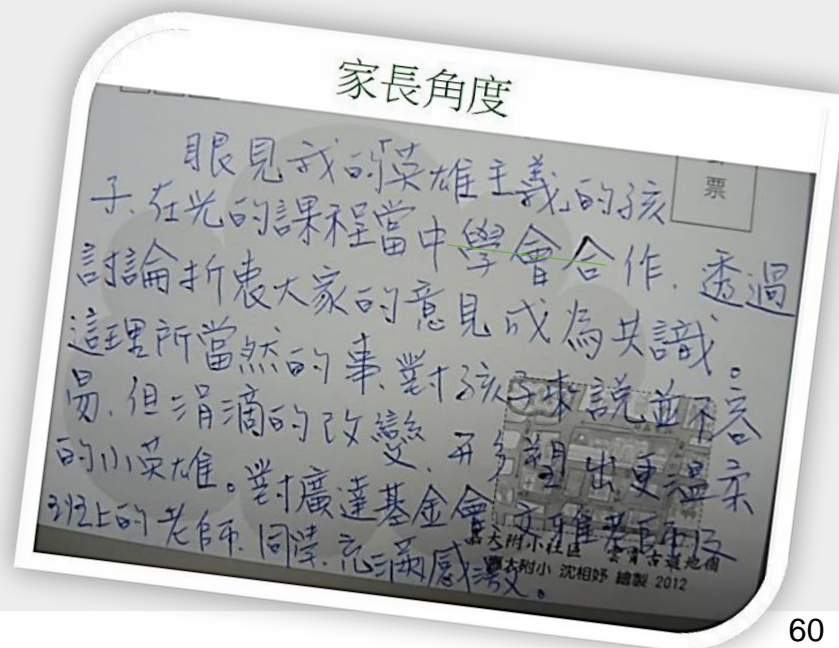 家長角度
票
眼見我的「英雄主義」的孩
子、在光的課程當中學會合作、透過
討論折衷大家的意見成為共識。
這理所當然的事、對孩子來說並不容
易、但涓滴的改變、形塑出更溫柔
的小英雄。對廣達基金會、文雅老師及
班上的老師、同學、充滿感激。
嘉大附小社區 雲霄古道地圖
嘉大附小 沈相妤 繪製 2012
60